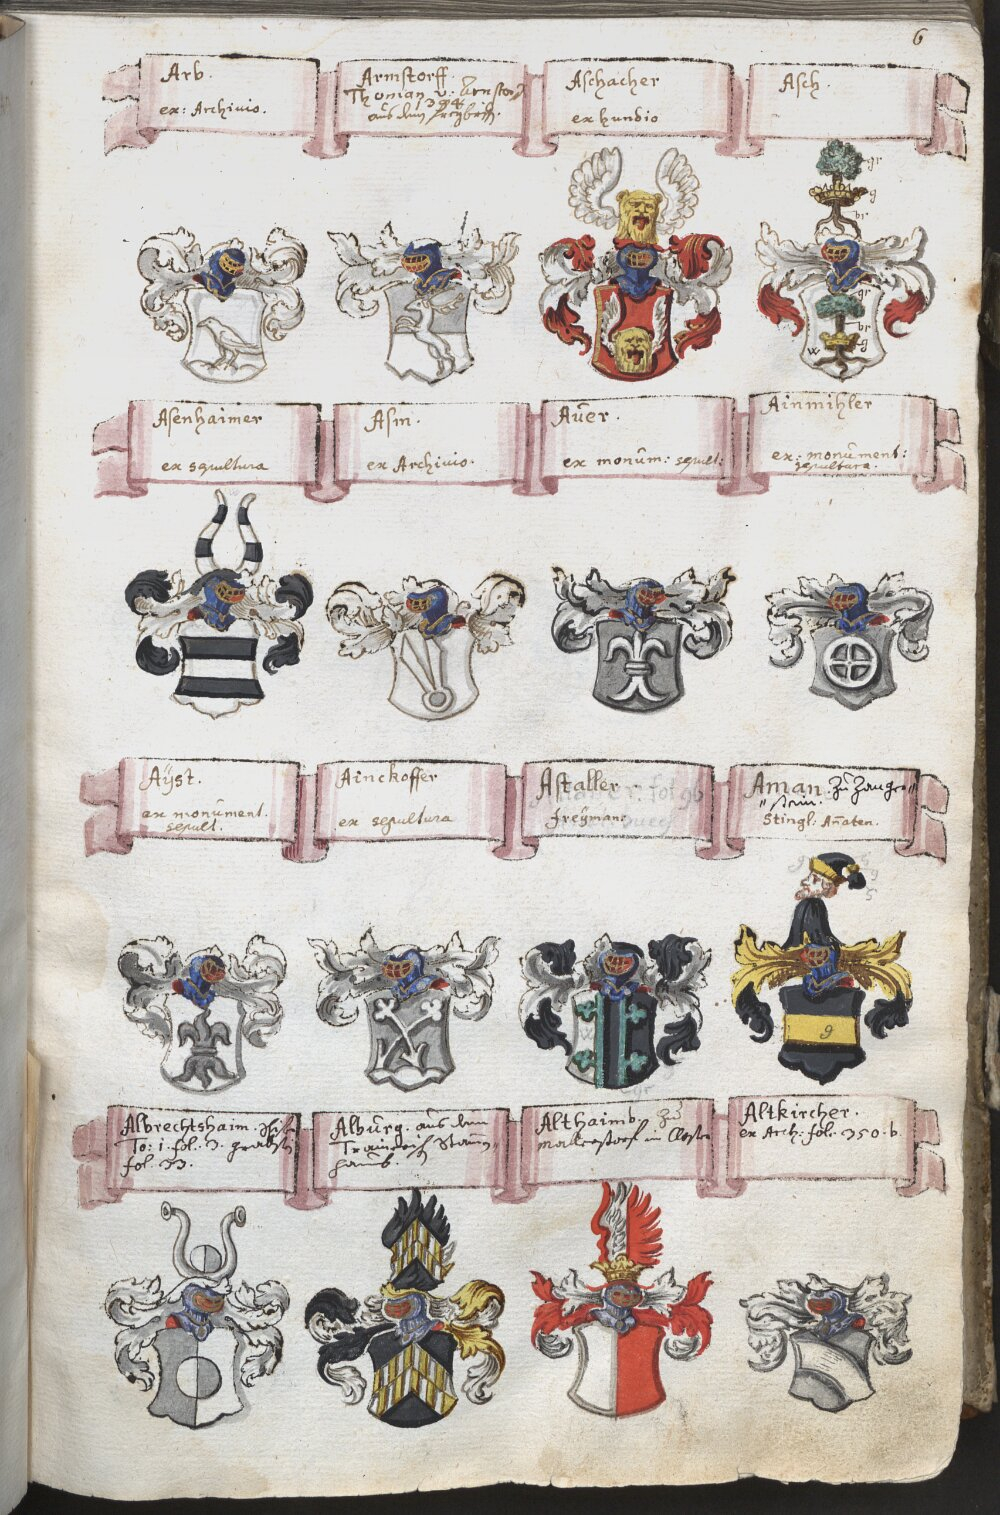 6
Arb.
ex: Archivio.
Armstorff.
Thoman v: Armstorf
1394
aus dem
Aschacher
ex hundio
Asch.
gr
g
br
gr
br
g
w
Asenhaimer
ex sepultura
Asm.
ex Archivio.
Aüer.
ex monüm: sepult:
Ainmihler
ex: monüment:
sepultura.
Aÿst.
ex monüment.
sepult.
Ainckoffer
ex sepultura
Astaller
freÿmans
fol 96
Aman. zü Zangen
stain.
Stingl: Añaten.
g
s
g
s
g
w
gr
Albrechtshaim.
To: 1. fol. 3.
fol. 33.
Albürg. aus dem
Stam
haus.
Althaim
in Closter
Altkircher.
ex Arch: fol. 350. b.